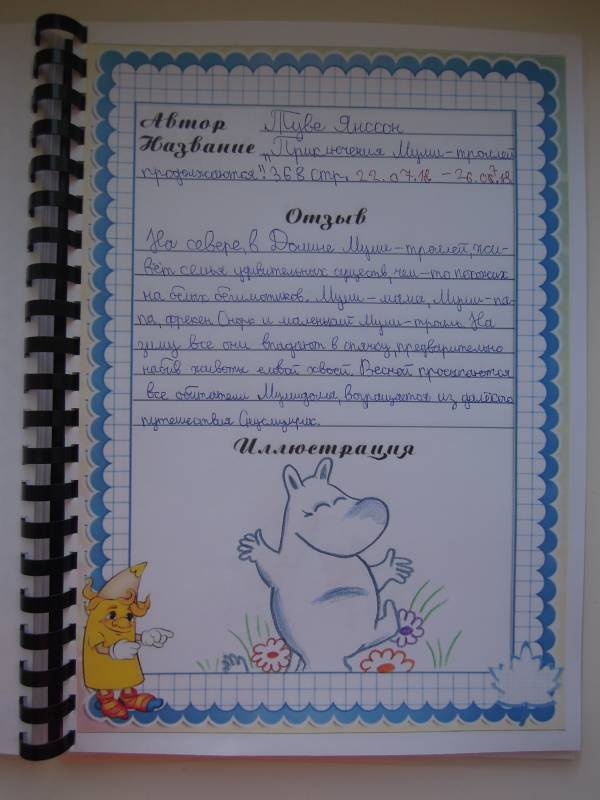 Автор Туве Янссон
Название „Приключения Муми-троллей
продолжаются". 368 стр. 22.07.18 – 26.07.18
Отзыв
На севере, в Долине Муми-троллей, жи-
вёт семья удивительных существ, чем-то похожих
на белых бегемотиков. Муми-мама, Муми-па-
па, фрекен Снорк и маленький Муми-тролль. На
зиму все они впадают в спячку, предварительно
набив животы еловой хвоей. Весной просыпаются
все обитатели Мумидома, возвращается из далёкого
путешествия Снусмумрик.
Иллюстрация